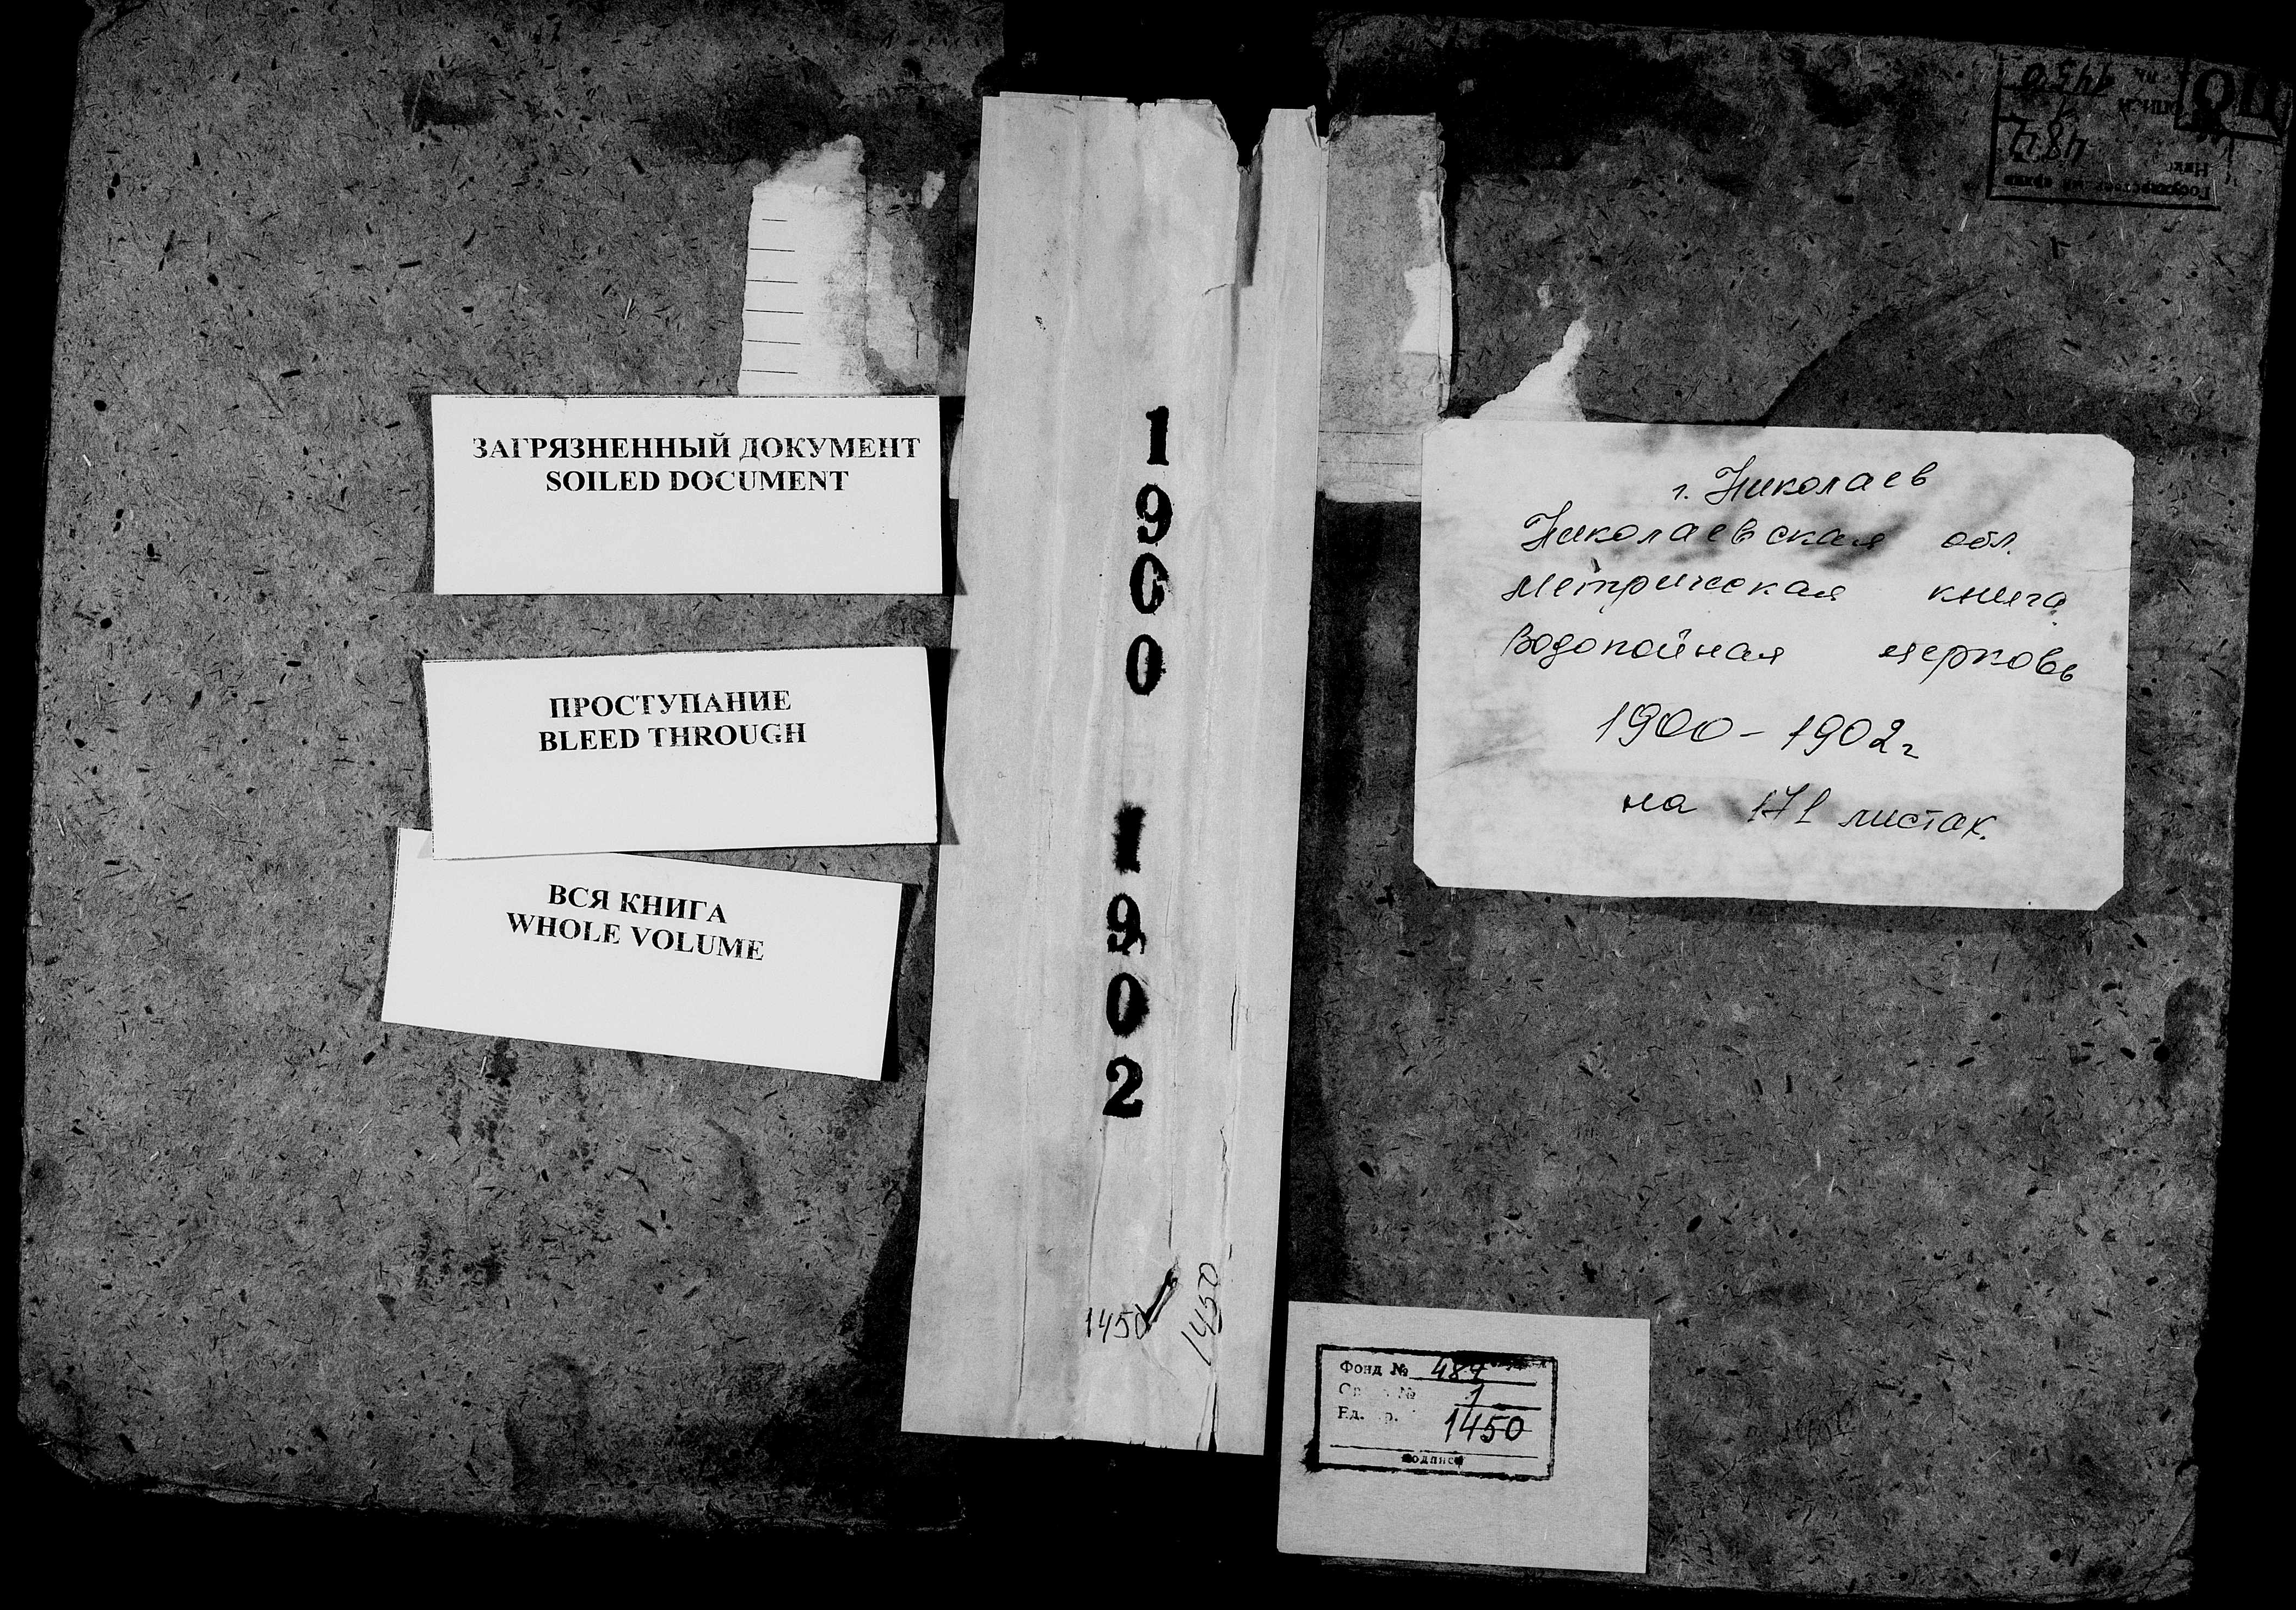 ЗАГРЯЗНЕННЫЙ ДОКУМЕНТ
SOILED DOCUMENT
ПРОСТУПАНИЕ
BLEED THROUGH
ВСЯ КНИГА
WHOLE VOLUME
1
9
0
0
1
9
0
2
1450
1450
г. Николаев
Николаевская обл.
метрическая книга
Водопойная церковь
1900-1902г
на 171 листах.
Фонд № 484
№ 1
Ед. 1450
подпись